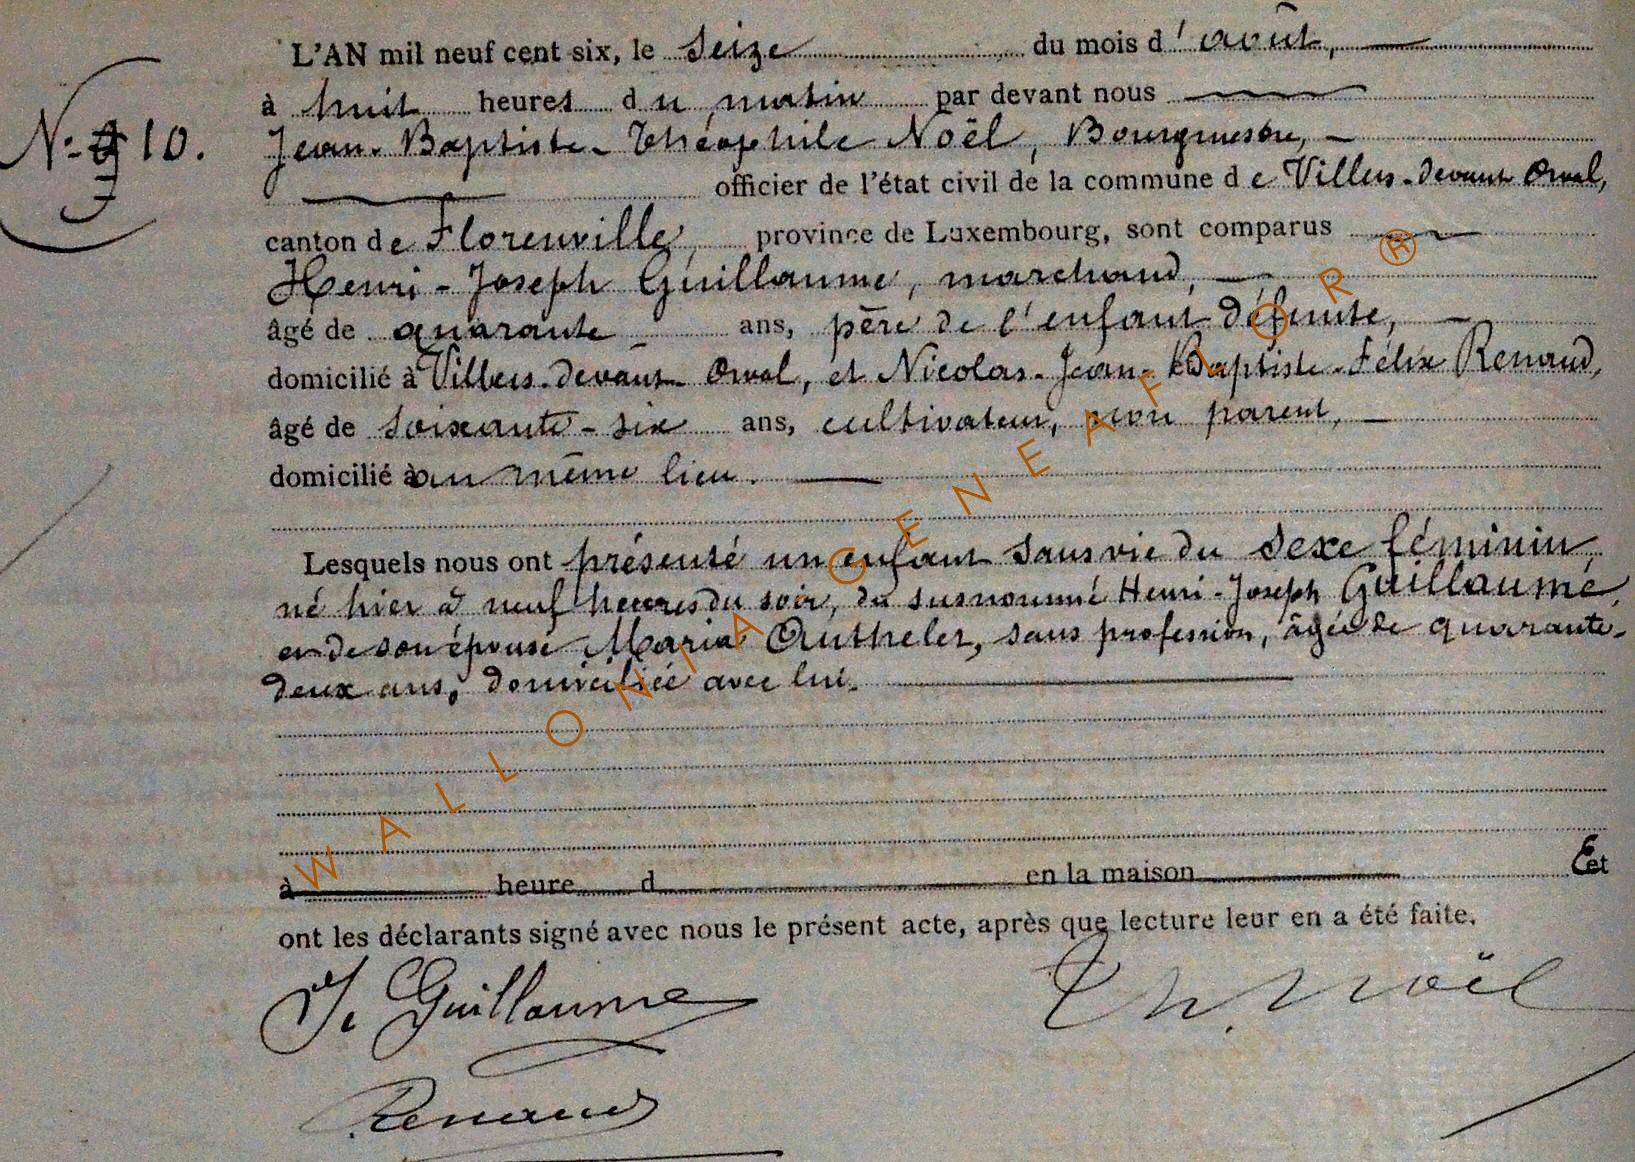 L'AN mil neuf cent six, le seize du mois d'août,
N° 10.
à huit heures du matin par devant nous
Jean-Baptiste-Théophile Noël, Bourgmestre,
officier de l'état civil de la commune de Villers-devant Orval,
canton de Florenville, province de Luxembourg, sont comparus
Henri-Joseph Guillaume, marchand,
âgé de quarante ans, père de l'enfant défunte,
domicilié à Villers-devant-Orval, et Nicolas-Jean-Baptiste-Félix Renaud,
âgé de soixante-six ans, cultivateur, non parent,
domicilié au même lieu.
Lesquels nous ont présenté un enfant sans vie du sexe féminin
né hier à neuf heures du soir, du susnommé Henri-Joseph Guillaume,
et de son épouse Maria Outhelet, sans profession, âgée de quarante-
deux ans, domiciliée avec lui.
à heure d en la maison Et
ont les déclarants signé avec nous le présent acte, après que lecture leur en a été faite.
Guillaume Th. Noël
Renaud
WALLONIA GENEAFLOR ®